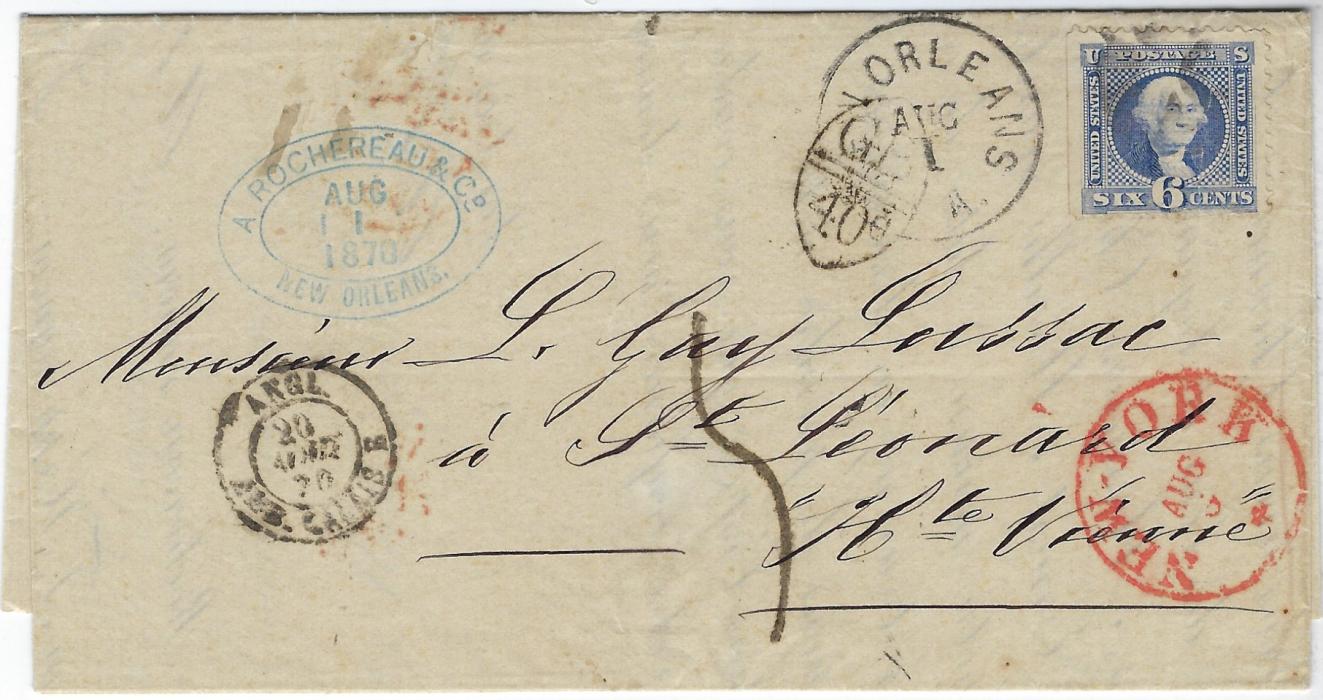 U POSTAGE S
UNITED STATES
UNITED STATES
SIX 6 CENTS
N. ORLEANS
AUG
1
A.
GB
40c
A. ROCHEREAU & Co
AUG
1 1
1870
NEW ORLEANS.
Monsieur L. Gay Lussac
à St. Léonard
Hte Vienne
5
ANGL.
20
AOUT
70
AMB. CALAIS
NEW-YORK
AUG